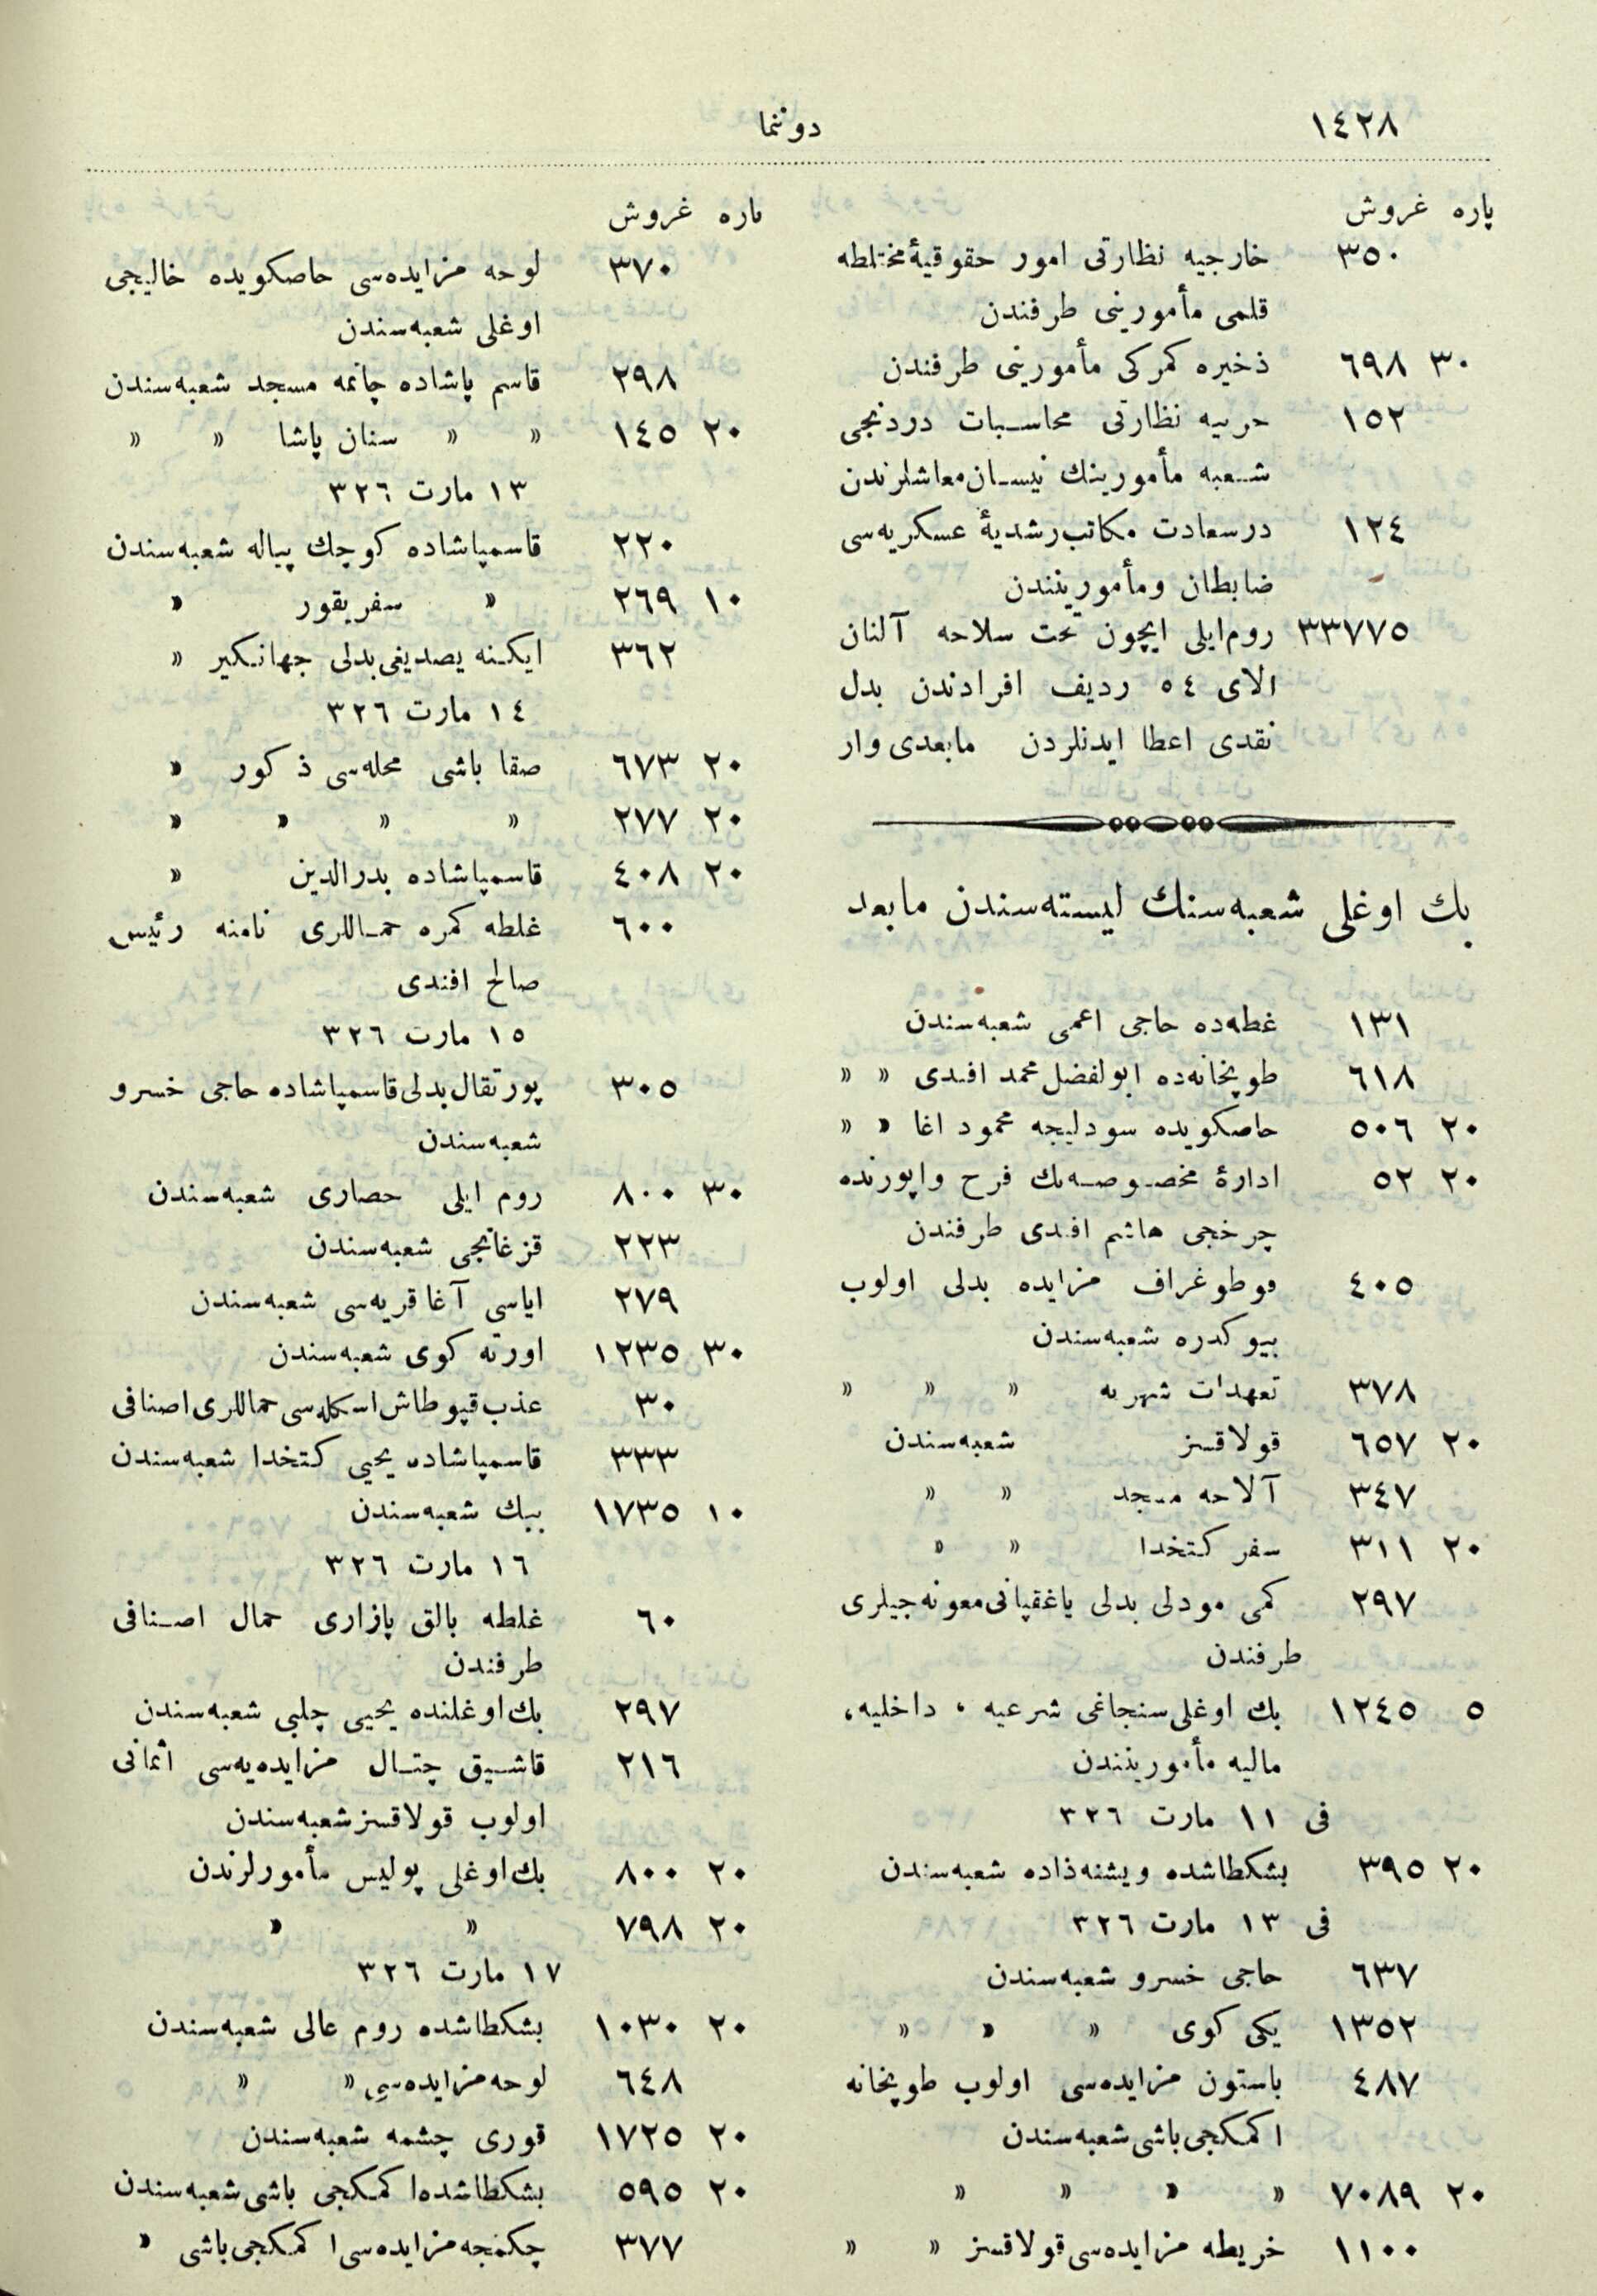 ١٤٢٨
دوننما
پاره غروش
٣٥٠ خارجیه نظارتی امور حقوقیهٔ مختلطه
قلمی مأمورینی طرفندن
٣٠ ٦٩٨ ذخیره کمرکی مأمورینی طرفندن
١٥٢ حربیه نظارتی محاسبات دردنجی
شعبه مأمورینك نیسان معاشلرندن
١٢٤ درسعادت مکاتب رشدیهٔ عسکریه‌سی
ضابطان ومأموریتندن
٣٣٧٧٥ روم‌ایلی ایچون تحت سلاحه آلنان
الای ٥٤ ردیف افرادندن بدل
نقدی اعطا ایدنلردن مابعدی وار
بك اوغلی شعبه‌سنك لیسته‌سندن مابعد
١٣١ غطه‌ده حاجی اعمی شعبه‌سندن
٦١٨ طوپخانه‌ده ابولفضل محمد افندی » »
٢٠ ٥٠٦ حاصکویده سودلیجه محمود اغا » »
٢٠ ٥٢ ادارهٔ مخصوصه‌نك فرح واپورنده
چرخجی هاشم افندی طرفندن
٤٠٥ فوطوغراف مزایده بدلی اولوب
بیوکدره شعبه‌سندن
٣٧٨ تعهدات شهریه » » »
٢٠ ٦٥٧ قولاقسز شعبه‌سندن
٣٤٧ آلاجه مسجد » »
٢٠ ٣١١ سفر کتخدا » »
٢٩٧ کمی مودلی بدلی یاغقپانی معونه‌جیلری
طرفندن
٥ ١٢٤٥ بك اوغلی سنجاغی شرعیه ، داخلیه ،
مالیه مأمورینندن
فی ١١ مارت ٣٢٦
٢٠ ٣٩٥ بشکطاشده ویشنه‌ذاده شعبه‌سندن
فی ١٣ مارت ٣٢٦
٦٣٧ حاجی خسرو شعبه‌سندن
١٣٥٢ یکی کوی » » »
٤٨٧ باستون مزایده‌سی اولوب طوپخانه
اکمکجی‌باشی شعبه‌سندن
٢٠ ٧٠٨٩ » » » »
١١٠٠ خریطه مزایده‌سی قولاقسز » »
پاره غروش
٣٧٠ لوحه مزایده‌سی حاصکویده خالیجی
اوغلی شعبه‌سندن
٢٩٨ قاسم پاشاده چاتمه مسجد شعبه‌سندن
٢٠ ١٤٥ » » سنان پاشا » »
١٣ مارت ٣٢٦
٢٢٠ قاسمپاشاده کوچك پیاله شعبه‌سندن
١٠ ٢٦٩ » سفریقور »
٣٦٢ ایکنه یصدیغی بدلی جهانکیر »
١٤ مارت ٣٢٦
٢٠ ٦٧٣ صقا باشی محله‌سی ذکور »
٢٠ ٢٧٧ » » » »
٢٠ ٤٠٨ قاسمپاشاده بدرالدین »
٦٠٠ غلطه کمره حماللری نامنه رئیس
صالح افندی
١٥ مارت ٣٢٦
٣٠٥ پورتقال بدلی قاسمپاشاده حاجی خسرو
شعبه‌سندن
٣٠ ٨٠٠ روم ایلی حصاری شعبه‌سندن
٢٢٣ قزغانجی شعبه‌سندن
٢٧٩ ایاسی آغا قریه‌سی شعبه‌سندن
٣٠ ١٢٣٥ اورته کوی شعبه‌سندن
٣٠ عذب‌قپو طاش اسکله‌سی حماللری اصنافی
٣٣٣ قاسمپاشاده یحیی کتخدا شعبه‌سندن
١٠ ١٧٣٥ ببك شعبه‌سندن
١٦ مارت ٣٢٦
٦٠ غلطه بالق پازاری حمال اصنافی
طرفندن
٢٩٧ بك اوغلنده یحیی چلبی شعبه‌سندن
٢١٦ قاشیق چتال مزایده‌یه‌سی اثمانی
اولوب قولاقسز شعبه‌سندن
٢٠ ٨٠٠ بك اوغلی پولیس مأمورلرندن
٢٠ ٧٩٨ » »
١٧ مارت ٣٢٦
٢٠ ١٠٣٠ بشکطاشده روم عالی شعبه‌سندن
٦٤٨ لوحه مزایده‌سی » »
٢٠ ١٧٢٥ قوری چشمه شعبه‌سندن
٢٠ ٥٩٥ بشکطاشده اکمکجی باشی شعبه‌سندن
٣٧٧ چکمجه مزایده‌سی اکمکجی‌باشی »